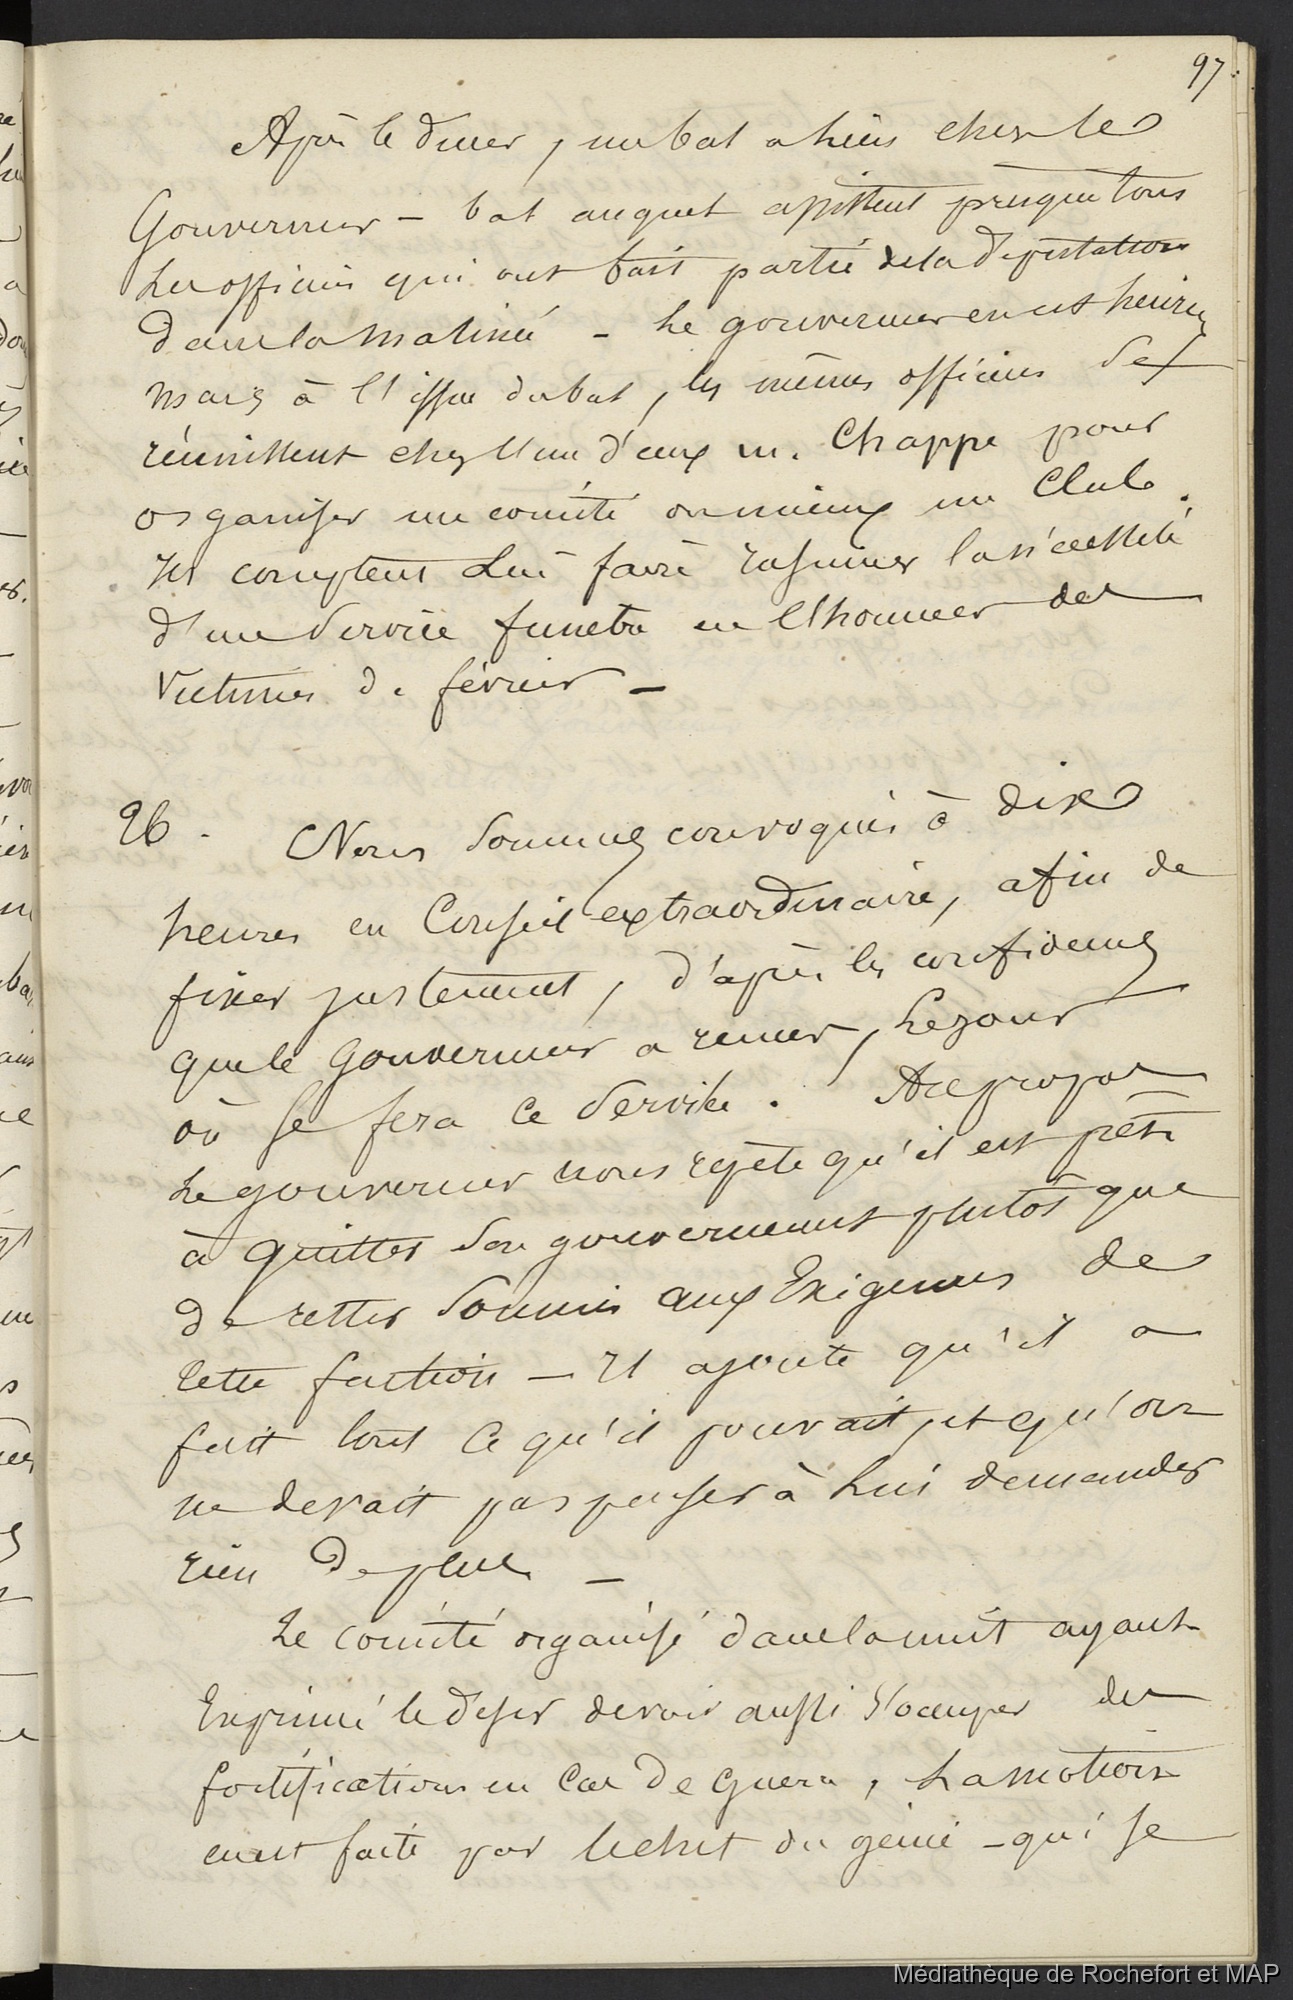 97.
Après le diner, un bal a lieu chez le
Gouverneur – bal auquel assistent presque tous
les officiers qui ont fait partie de la députation
dans la matinée – le gouverneur en est heureux
mais à l'issue du bal, les mêmes officiers se
réunissent chez l'un d'eux m. Chappe pour
organiser un comité ou mieux un Club.
Ils comptent lui faire la nécessité
d'un service funèbre en l'honneur des
victimes de février –
26. Nous sommes convoqués à dix
heures en Conseil extraordinaire, afin de
fixer justement, d'après les confidences
que le Gouverneur a reçues, le jour
où se fera ce service. A ce propos
le gouverneur nous repète qu'il est prêt
à quitter son gouvernement plutôt que
de rester soumis aux Exigences de
cette faction – Il ajoute qu'il a
fait tout ce qu'il pouvait, et qu'on
ne devait pas penser à lui demander
rien de plus –
Le comité organisé dans la nuit ayant
Exprimé le desir de voir aussi s'occuper des
fortifications en cas de guerre, la motion
en est faite par le chef du génie – qui se
Médiathèque de Rochefort et MAP